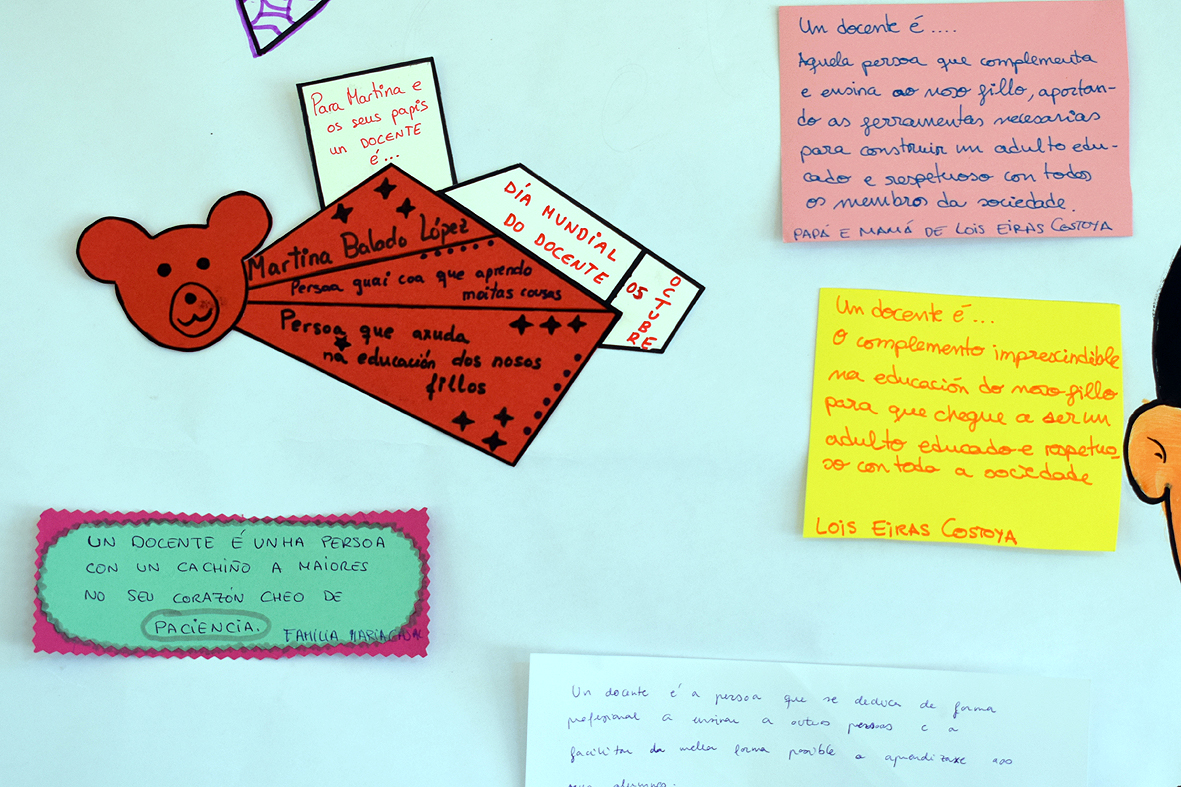 Para Martina e
os seus papis
un DOCENTE
é...
DÍA MUNDIAL
DO DOCENTE
05
OCTUBRE
Martina Balado López
Persoa guai coa que aprendo
moitas cousas
Persoa que axuda
na educación dos nosos
fillos
Un docente é....
Aquela persoa que complementa
e ensina ao noso fillo, aportan-
do as ferramentas necesarias
para construir un adulto edu-
cado e respetuoso con todos
os membros da sociedade.
PAPÁ E MAMÁ DE LOIS EIRAS COSTOYA
Un docente é...
O complemento imprescindible
na educación do noso fillo
para que chegue a ser un
adulto educado e respetuo-
so con toda a sociedade
LOIS EIRAS COSTOYA
UN DOCENTE É UNHA PERSOA
CON UN CACHIÑO A MAIORES
NO SEU CORAZÓN CHEO DE
PACIENCIA.
FAMILIA MARIA
Un docente é a persoa que se deduca de forma
profesional a ensinar a outras persoas e a
facilitar da mellor forma posible a aprendizaxe aos
seus alumnos.